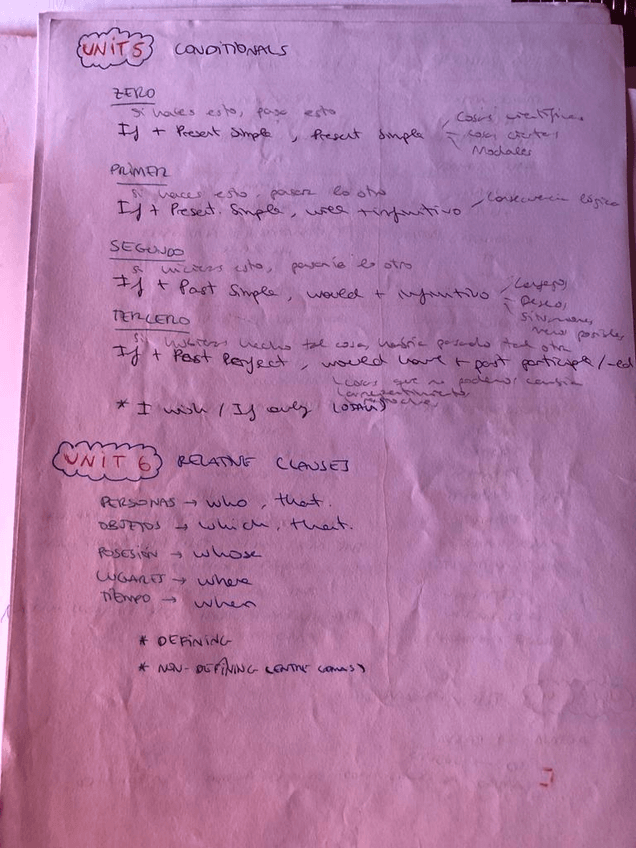 UNIT 5 CONDITIONALS
ZERO
si haces esto, pasa esto
If + Present Simple, Present Simple
Cosas científicas
Cosas ciertas
Modales
PRIMER
si haces esto, pasará lo otro
If + Present Simple, will + infinitivo
Consecuencia lógica
SEGUNDO
si hicieras esto, pasaría lo otro
If + Past Simple, would + infinitivo
Consejos,
Deseo,
Situaciones
poco posibles
TERCERO
Si hubieras hecho tal cosa, habría pasado tal otra
If + Past Perfect, would have + past participle/-ed
cosas que no podemos cambiar
arrepentimiento,
* I wish / If only (OJALÁ)
UNIT 6 RELATIVE CLAUSES
PERSONAS → who, that.
OBJETOS → which, that.
POSESIÓN → whose
LUGARES → where
TIEMPO → when
* DEFINING
* NON-DEFINING (ENTRE COMAS)